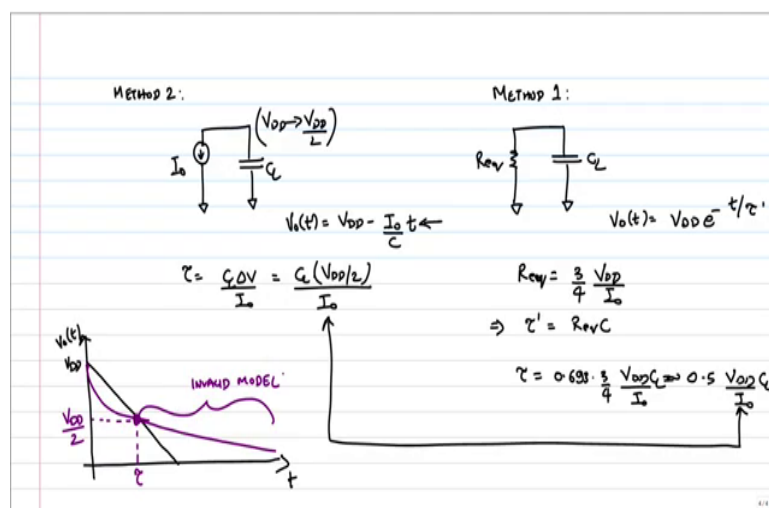 METHOD 2:
(VDD→VDD/2)
I₀
C_L
V₀(t) = VDD - I₀/C t ←
τ = C_LΔV/I₀ = C_L(VDD/2)/I₀
V₀(t)
VDD
VDD/2
INVALID MODEL
τ
t
METHOD 1:
Reqv
C_L
V₀(t) = VDD e^(-t/τ')
Reqv = 3/4 VDD/I₀
⇒ τ' = ReqvC
τ = 0.693·3/4 VDDC_L/I₀ ≈ 0.5 VDDC_L/I₀